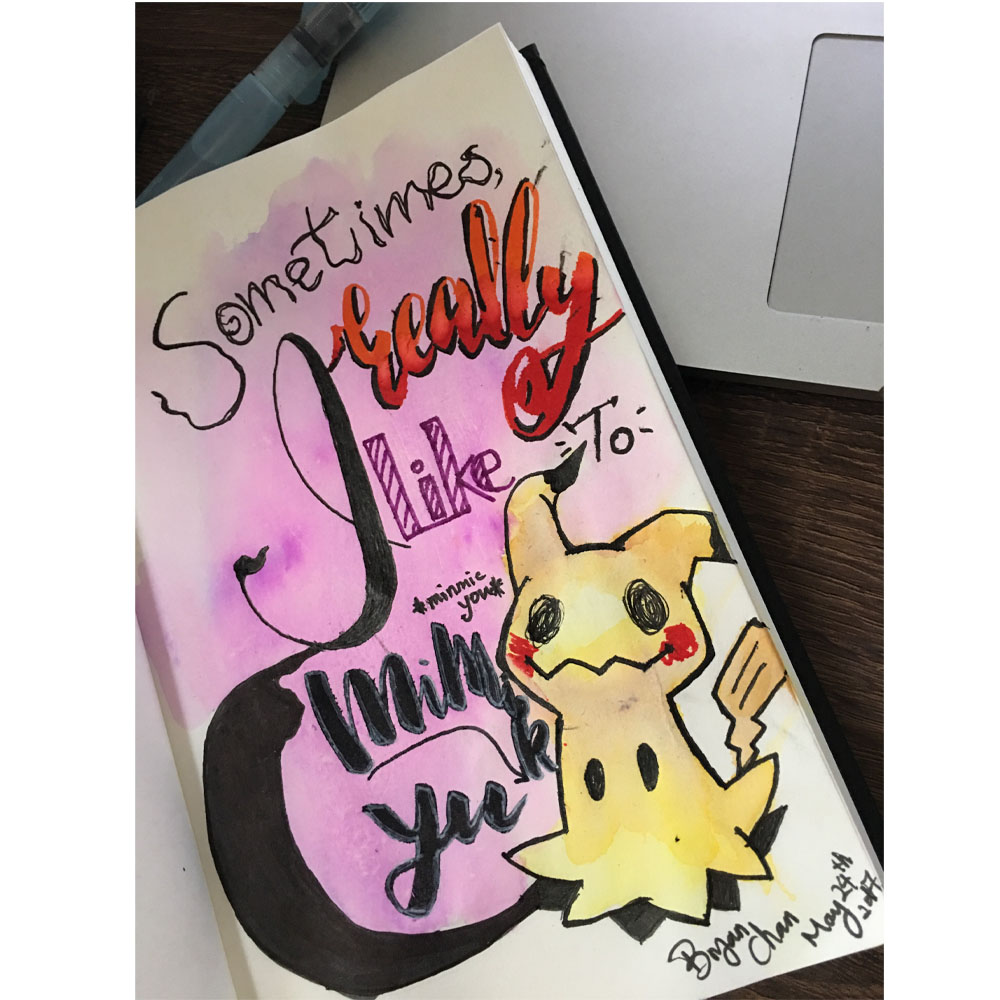 Sometimes,
I really
like To
*minmic
you*
Mimi
k
yu
Bryan
Chan
May 24th
2017